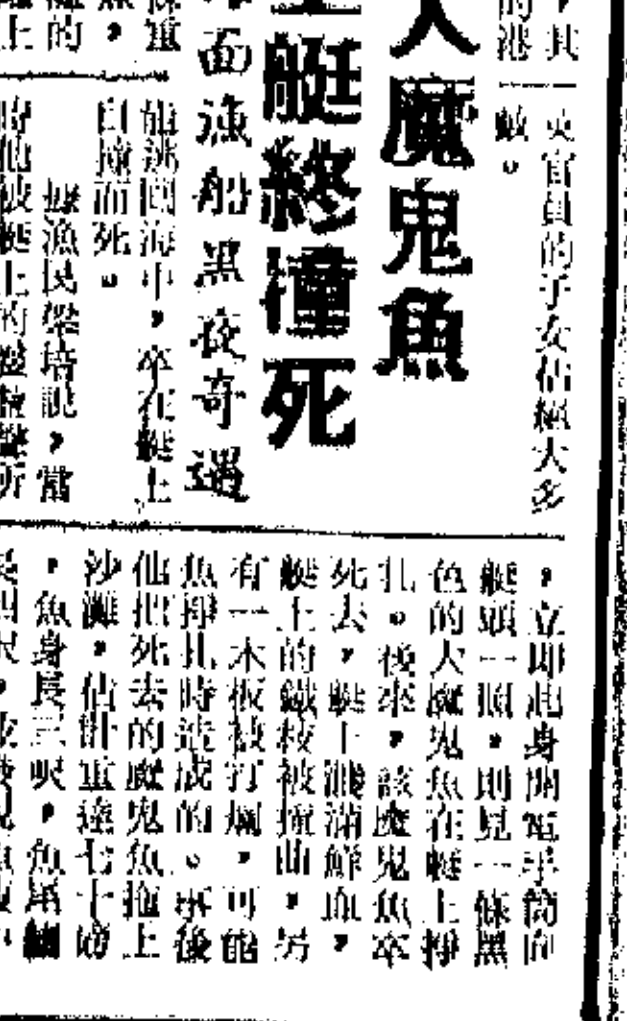 ，其
的港
英官員的子女佔絕大多
數。
人魔鬼魚
艇終撞死
面漁船黑夜奇遇
條重
，
的
上
能跳回海中，卒在艇上
自撞而死。
據漁民梁培說，當
時他被艇上的
，立即起身開電手筒向
艇頭一照，則見一條黑
色的大魔鬼魚在艇上掙
扎。後來，該魔鬼魚卒
死去，艇上濺滿鮮血，
艇上的鐵枝被撞曲，另
有一木板被打爛，可能
魚掙扎時造成的。事後
他把死去的魔鬼魚拖上
沙灘，估計重達七十磅
，魚身長三呎，魚尾